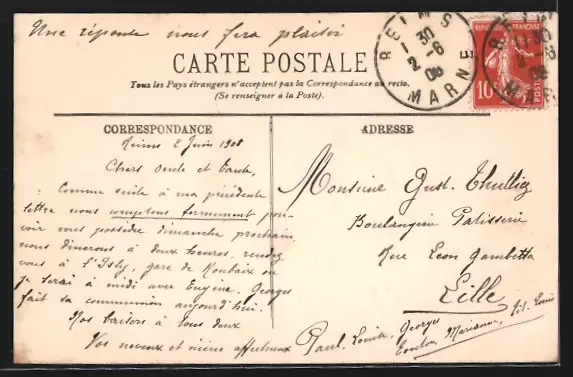 Une réponse nous fera plaisir
CARTE POSTALE
Tous les Pays étrangers n'acceptent pas la Correspondance au recto.
(Se renseigner à la Poste).
REIMS
1 30
2-6
08
MARNE
10
POSTES
CORRESPONDANCE
ADRESSE
Reims 2 Juin 1908
Chers oncle et tante,
Comme suite à ma précédente
lettre nous comptons fermement pou-
voir vous posséder dimanche prochain,
nous dînerons à deux heures, rendez
vous à l'Isly, gare de Roubaix où
je serai à midi avec Eugène. Georges
fait sa communion aujourd'hui.
Nos baisers à tous deux
Vos neveux et nièces affectueux
Paul, Louise, Georges
Marianne,
Monsieur Gust.
Boulangerie Patisserie
Rue Léon Gambetta
Lille